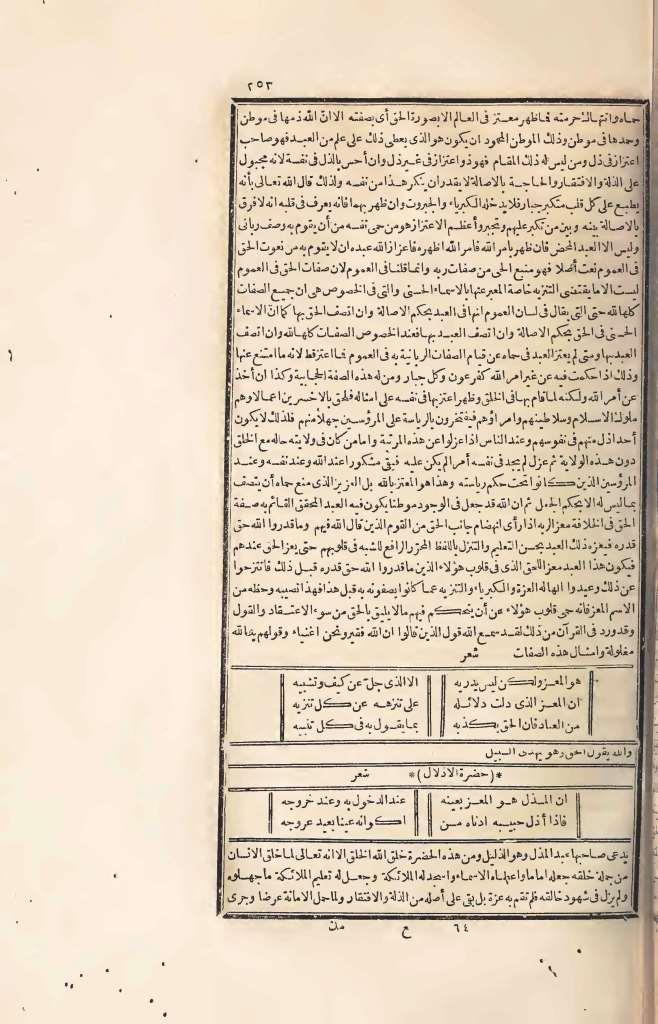 ٢٥٣
حماه وانتهاك حرمته فما ظهر معتز في العالم الا بصورة الحق أى بصفته الا ان الله ذمها في موطن
وحمدها في موطن وذلك الموطن المحمود ان يكون هو الذى يعطى ذلك على علم من العبد فهو صاحب
اعتزاز فى ذل ومن ليس له ذلك المقام فهو ذو اعتزاز فى غير ذل وان أحس بالذل فى نفسه لانه مجبول
على الذلة والافتقار والحاجة بالاصالة لا يقدر ان ينكر هذا من نفسه ولذلك قال الله تعالى بأنه
يطبع على كل قلب متكبر جبار فلا يدخله الكبرياء والجبروت وان ظهر بهما فانه يعرف فى قلبه انه لا فرق
بالاصالة بينه وبين من تكبر عليهم وتجبر وأعظم الاعتزاز هو من حمى نفسه من أن يقوم به وصف ربانى
وليس الا العبد المحض فان ظهر بأمر الله فأمر الله اظهره فاعزاز الله عبده ان لا يقوم به من نعوت الحق
فى العموم نعت أصلا فهو منيع الحمى من صفات ربه وانما قلنا فى العموم لان صفات الحق فى العموم
ليست الا ما يقتضى التنزيه خاصة المعبر عنها بالاسماء الحسنى والتى فى الخصوص هى ان جميع الصفات
كلها لله حتى التى يقال فى لسان العموم انها فى العبد بحكم الاصالة وان اتصف الحق بها كما ان الاسماء
الحسنى فى الحق بحكم الاصالة وان اتصف العبد بها فعند الخصوص الصفات كلها لله وان اتصف
العبد بها ومتى لم يعتز العبد فى حماه عن قيام الصفات الربانية به فى العموم فما اعتز قط لانه ما امتنع عنها
وذلك اذا حكمت فيه عن غير امر الله كفرعون وكل جبار ومن له هذه الصفة الحجابية وكذا ان أخذ
عن أمر الله ولكنه لما قام بها فى الخلق وظهر اعتز بها فى نفسه على امثاله فلحق بالاخسرين اعمالا وهم
ملوك الاسلام وسلاطينهم وامراؤهم فيفتخرون بالرياسة على المرؤسين جهلا منهم فلذلك لا يكون
أحد أذل منهم فى نفوسهم وعند الناس اذا عزلوا عن هذه المرتبة واما من كان فى ولايته حاله مع الخلق
دون هذه الولاية ثم عزل لم يجد فى نفسه أمرا لم يكن عليه فبقى مشكورا عند الله وعند نفسه وعند
المرؤسين الذين كانوا تحت حكم رياسته وهذا هو المعتز بالله بل العزيز الذى منع حماه أن يتصف
بما ليس له الا بحكم الجعل ثم ان الله قد جعل فى الوجود موطنا يكون فيه العبد المحقق القائم به صفة
الحق فى الخلافة معزا لربه اذا رأى انهضام جانب الحق من القوم الذين قال الله فيهم وما قدروا الله حق
قدره فيعزه ذلك العبد بحسن التعليم والتنزل باللفظ المحرر الرافع للشبه فى قلوبهم حتى يعز الحق عندهم
فيكون هذا العبد معزا للحق الذى فى قلوب هؤلاء الذين ما قدروا الله حق قدره قبل ذلك فانتزحوا
عن ذلك وعبدوا الها له العزة والكبرياء والتنزيه عما كانوا يصفونه به قبل هذا فهذا نصيبه وحظه من
الاسم المعز فانه حمى قلوب هؤلاء عن أن يتحكم فيهم ما لا يليق بالحق من سوء الاعتقاد والقول
وقد ورد فى القرآن من ذلك لقد سمع الله قول الذين قالوا ان الله فقير ونحن اغنياء وقولهم يد الله
مغلولة وامثال هذه الصفات شعر
هو المعز ولكن ليس يدريه الا الذى جل عن كيف وتشبيه
ان المعز الذى دلت دلائله على تنزهه عن كل تنزيه
من العباد فان الحق يكذبه بما يقول به فى كل تنبيه
والله يقول الحق وهو يهدى السبيل
*(حضرة الاذلال)* شعر
ان المذل هو المعز بعينه عند الدخول به وعند خروجه
فاذا أذل حبيبه ادناه من اكوانه عينا بعيد عروجه
يدعى صاحبها عبد المذل وهو الذليل ومن هذه الحضرة خلق الله الخلق الا انه تعالى لما خلق الانسان
من جملة خلقه جعله اماما واعطاه الاسماء واسجد له الملائكة وجعل له تعليم الملائكة ما جهلوه
ولم يزل فى شهود خالقه فلم تقم به عزة بل بقى على أصله من الذلة والافتقار ولما حمل الامانة عرضا وجرى
٦٤ ح مك